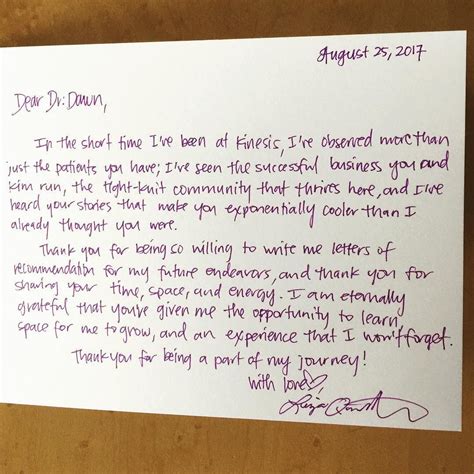 August 25, 2017
Dear Dr. Dawn,
In the short time I've been at Kinesis, I've observed more than
just the patients you have; I've seen the successful business you and
Kim run, the tight-knit community that thrives here, and I've
heard your stories that make you exponentially cooler than I
already thought you were.
Thank you for being so willing to write me letters of
recommendation for my future endeavors, and thank you for
sharing your time, space, and energy. I am eternally
grateful that you've given me the opportunity to learn,
space for me to grow, and an experience that I won't forget.
Thank you for being a part of my journey!
with love,